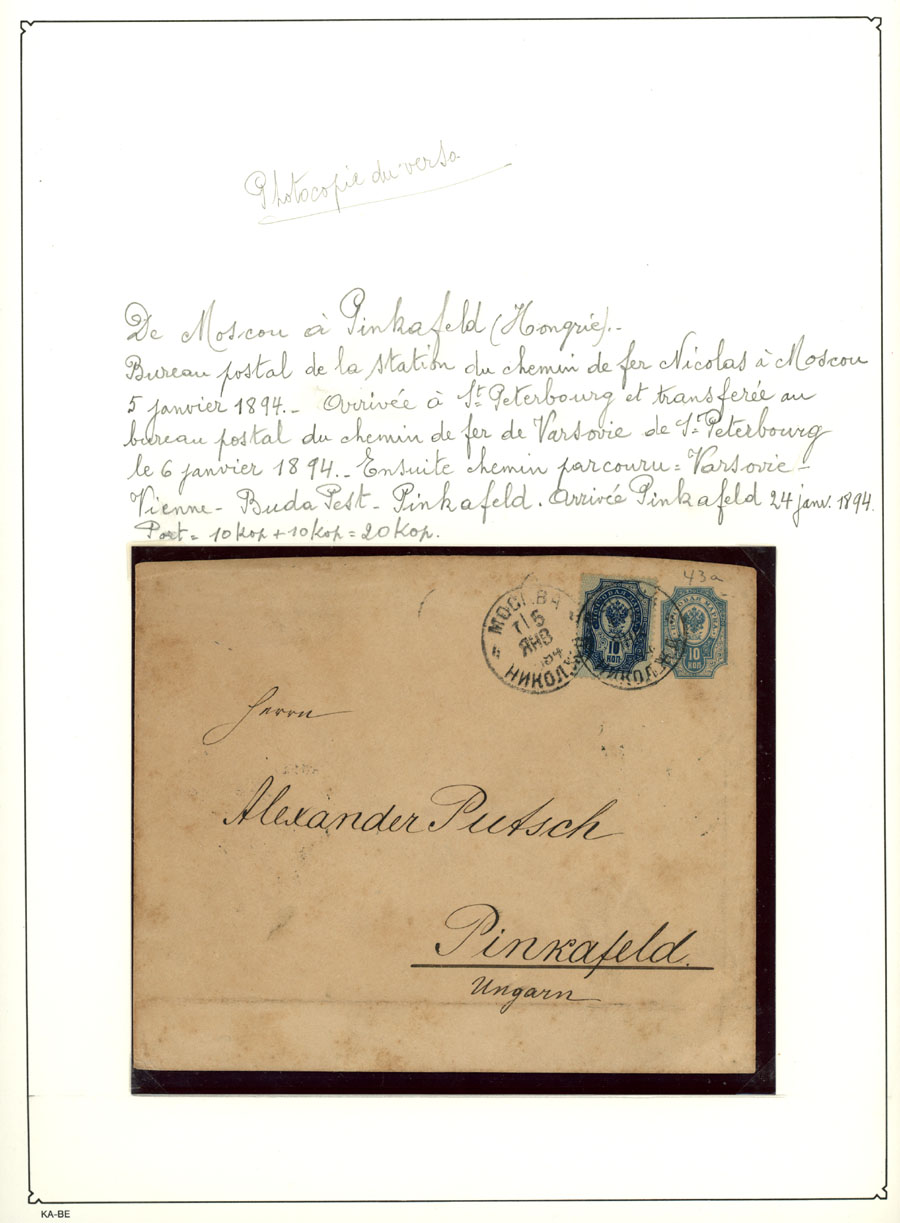 Photocopie du verso
De Moscou à Pinkafeld (Hongrie).-
Bureau postal de la station du chemin de fer Nicolas à Moscou
5 janvier 1894._ Arrivée à St. Peterbourg et transferée au
bureau postal du chemin de fer de Varsovie de St. Peterbourg
le 6 janvier 1894._ Ensuite chemin parcouru = Varsovie -
Vienne - Buda Pest - Pinkafeld. Arrivée Pinkafeld 24 janv. 1894.
Port = 10 kop + 10 kop = 20 kop.
43a
МОСКВА
5
ЯНВ
НИКОЛ
10
КОП
ПОЧТОВАЯ МАРКА
10
КОП
НИКОЛ
Herrn
Alexander Putsch
Pinkafeld.
Ungarn
KA-BE